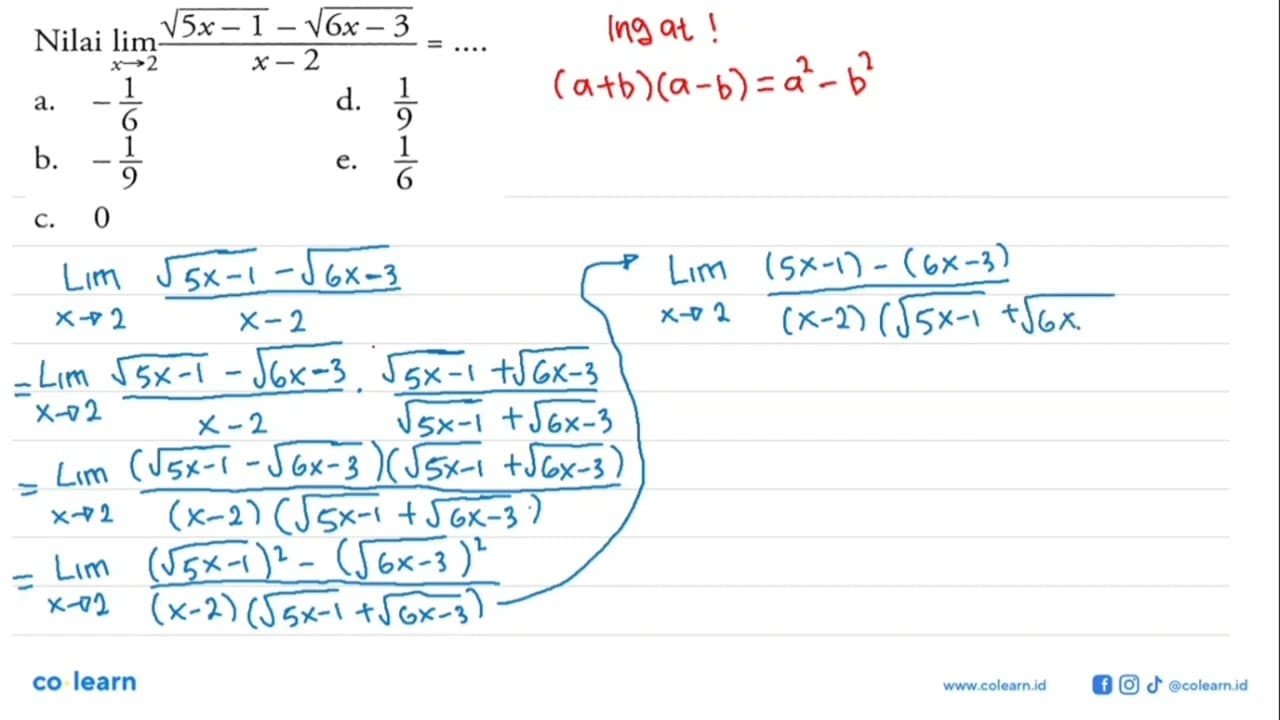 Nilai lim x→2 (√(5x − 1) − √(6x − 3))/(x − 2) = ....
a. −1/6 d. 1/9
b. −1/9 e. 1/6
c. 0
Ingat !
(a+b)(a-b) = a² - b²
Lim x→2 (√(5x-1) - √(6x-3))/(x-2)
= Lim x→2 (√(5x-1) - √(6x-3))/(x-2) . (√(5x-1) + √(6x-3))/(√(5x-1) + √(6x-3))
= Lim x→2 ((√(5x-1) - √(6x-3))(√(5x-1) + √(6x-3)))/((x-2)(√(5x-1) + √(6x-3)))
= Lim x→2 ((√(5x-1))² - (√(6x-3))²)/((x-2)(√(5x-1) + √(6x-3)))
Lim x→2 ((5x-1) - (6x-3))/((x-2)(√(5x-1) + √(6x
co learn
www.colearn.id @colearn.id